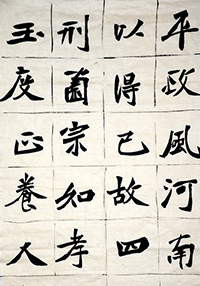 平政風河南
以得已故四
刑菌宗知孝
玉度正養人